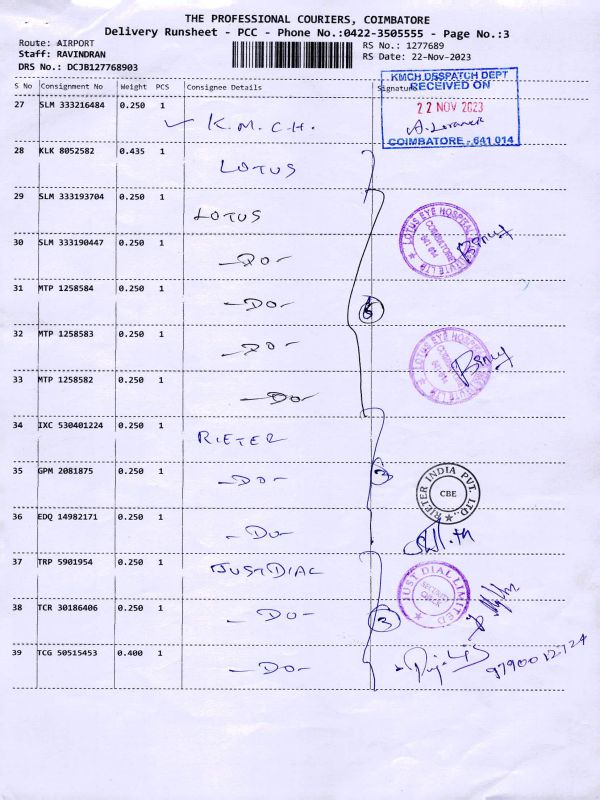 THE PROFESSIONAL COURIERS, COIMBATORE
Delivery Runsheet - PCC - Phone No.:0422-3505555 - Page No.:3
Route: AIRPORT
RS No.: 1277689
Staff: RAVINDRAN
RS Date: 22-Nov-2023
DRS No.: DCJB127768903
S No Consignment No Weight PCS Consignee Details Signature
KMCH DESPATCH DEPT
RECEIVED ON
22 NOV 2023
COIMBATORE - 641 014
27 SLM 333216484 0.250 1 K.M.C.H.
28 KLK 8052582 0.435 1 LOTUS
29 SLM 333193704 0.250 1 LOTUS
LOTUS EYE HOSPITAL
COIMBATORE
641 014
30 SLM 333190447 0.250 1 -Do-
31 MTP 1258584 0.250 1 -Do-
32 MTP 1258583 0.250 1 -Do-
33 MTP 1258582 0.250 1 -Do-
34 IXC 530401224 0.250 1 RIETER
35 GPM 2081875 0.250 1 -Do-
RIETER INDIA PVT. LTD.
CBE
36 EDQ 14982171 0.250 1 -Do-
37 TRP 5901954 0.250 1 JUSTDIAL
JUST DIAL LIMITED
38 TCR 30186406 0.250 1 -Do-
3
39 TCG 50515453 0.400 1 -Do-